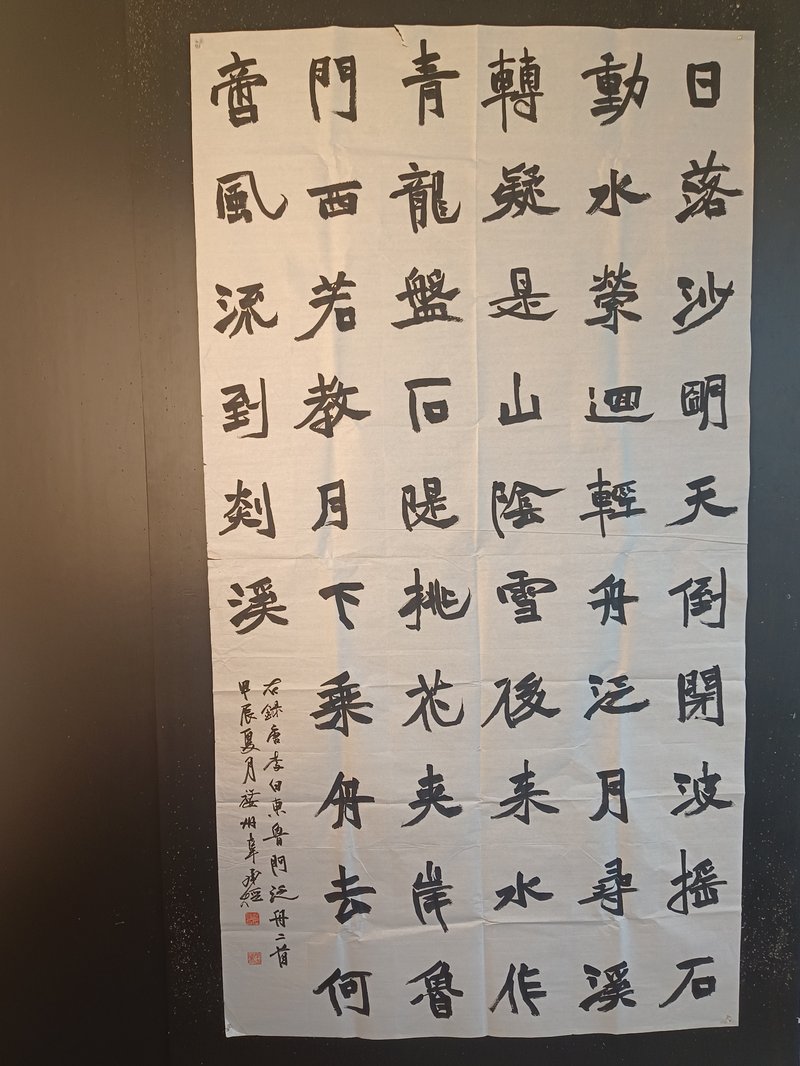 日落沙朙天倒開波搖石
動水縈迴輕舟泛月尋溪
轉疑是山陰雪後来水作
青龍盤石隄桃花夾岸魯
門西若教月下乘舟去何
啻風流到剡溪
右録唐李白東魯門泛舟二首
甲辰夏月婺州章